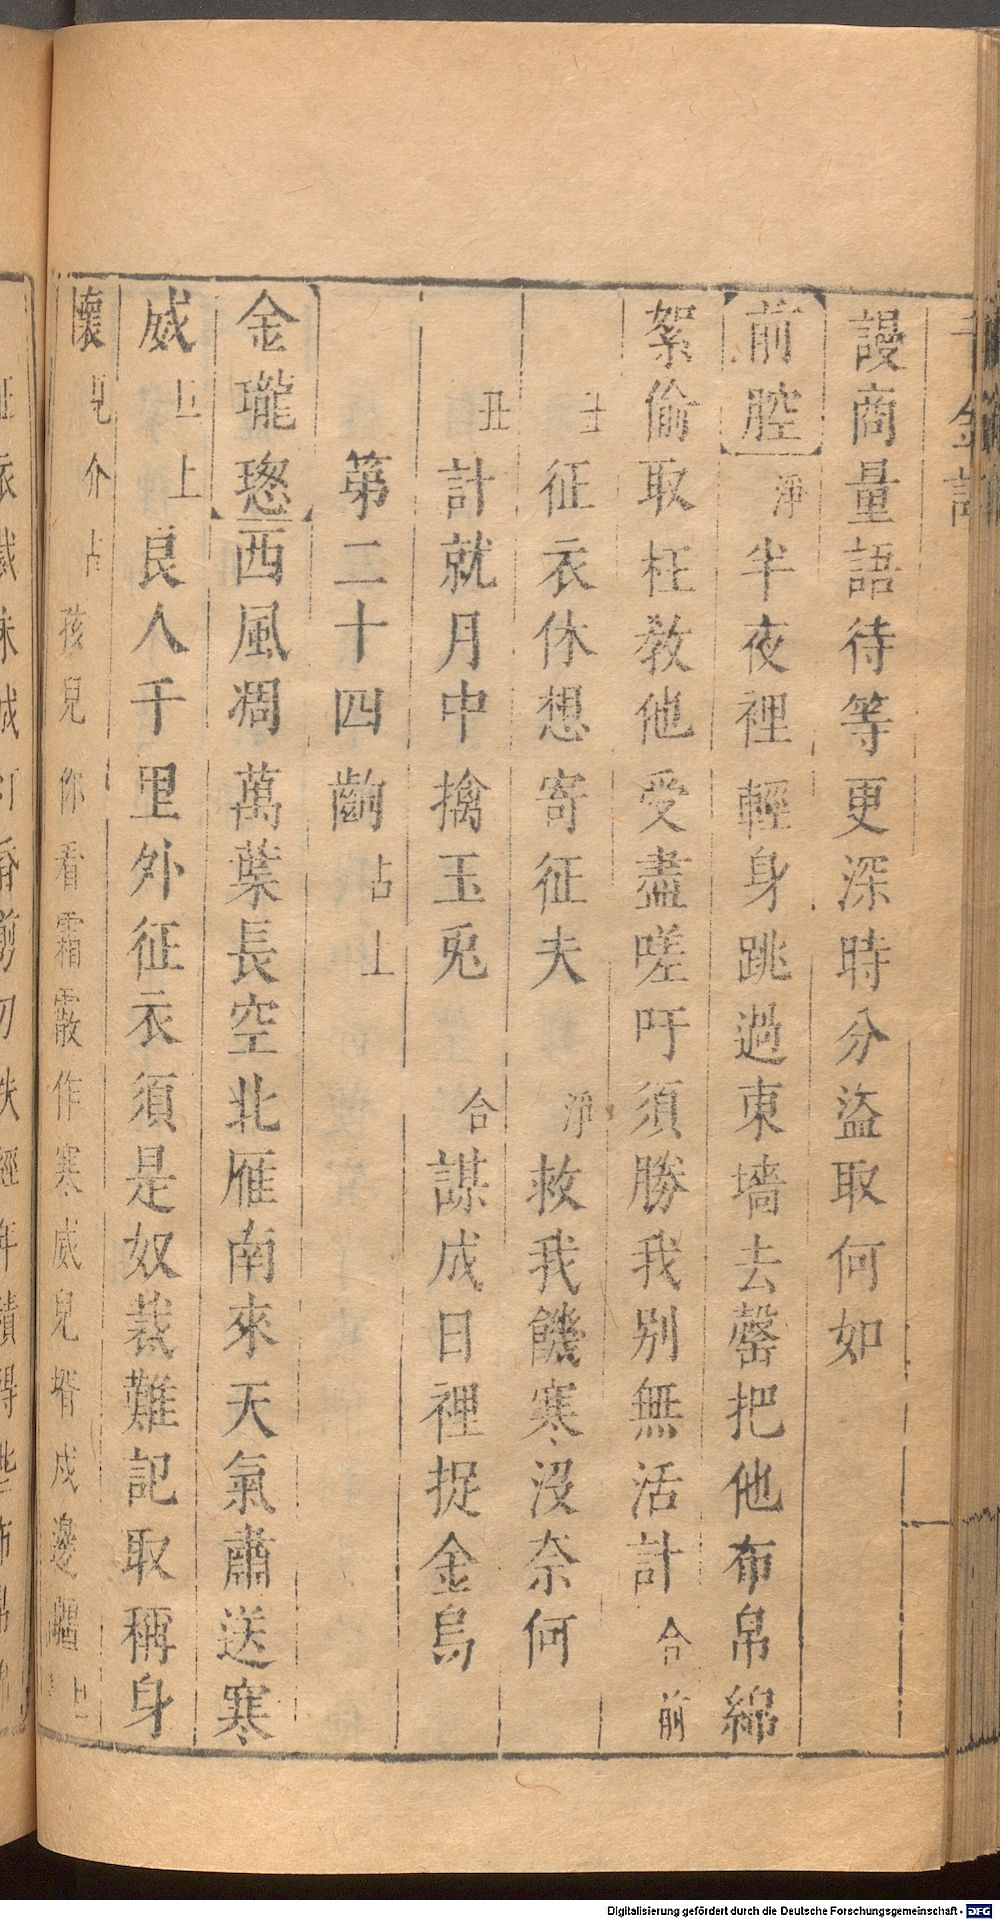 千金記
謾商量語待等更深時分盜取何如
【前腔】淨半夜裡輕身跳過東墻去罄把他布帛綿
絮偷取枉教他受盡嗟吁須勝我别無活計合前
丑征衣休想寄征夫淨救我饑寒没奈何
丑計就月中擒玉兎合謀成日裡捉金烏
第二十四齣占上
【金瓏璁】西風凋萬葉長空北雁南來天氣肅送寒
威旦上艮人千里外征衣須是奴裁難記取稱身
懷見介占孩兒你看霜霰作寒威兒壻戍邊
Digitalisierung gefördert durch die Deutsche Forschungsgemeinschaft - DFG